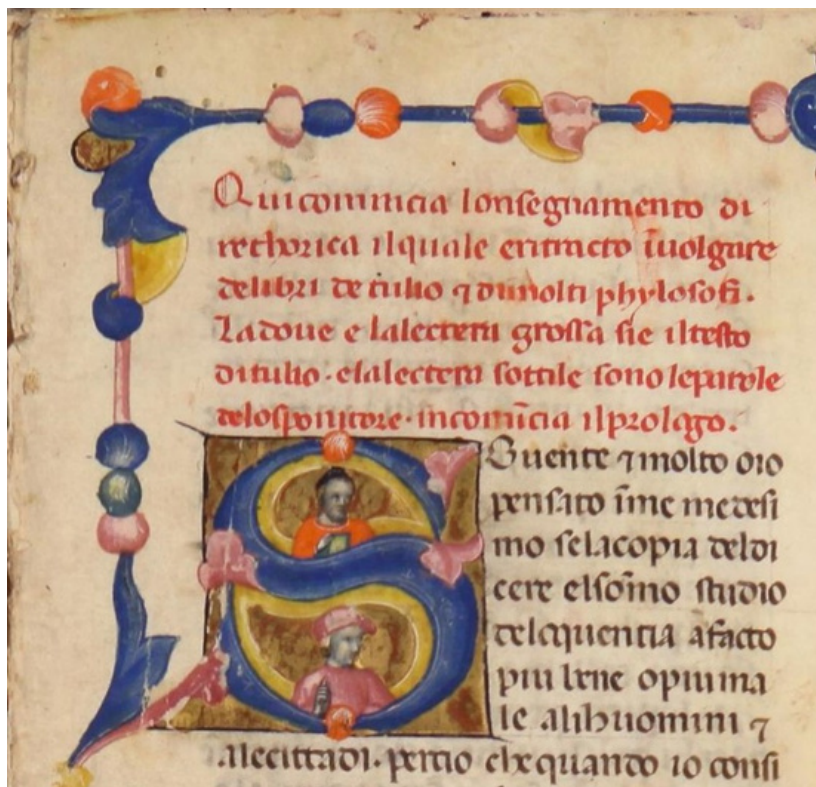 Qui comincia lonsegnamento di
rethorica ilquale entracto ĩuolgare
delibri de tulio ⁊ dimolti phylosofi.
Ladoue e lalectera grossa sie iltesto
ditulio. elalectera sottile sono leparole
delosponitore. incomĩcia ilprolago.
Souente ⁊ molto oio
pensato ĩme medesi
mo selacopia deldi
cere elsom̃o studio
deloquentia a facto
piu bene o piu ma
le alihuomini ⁊
alecittadi. percio che quando io consi